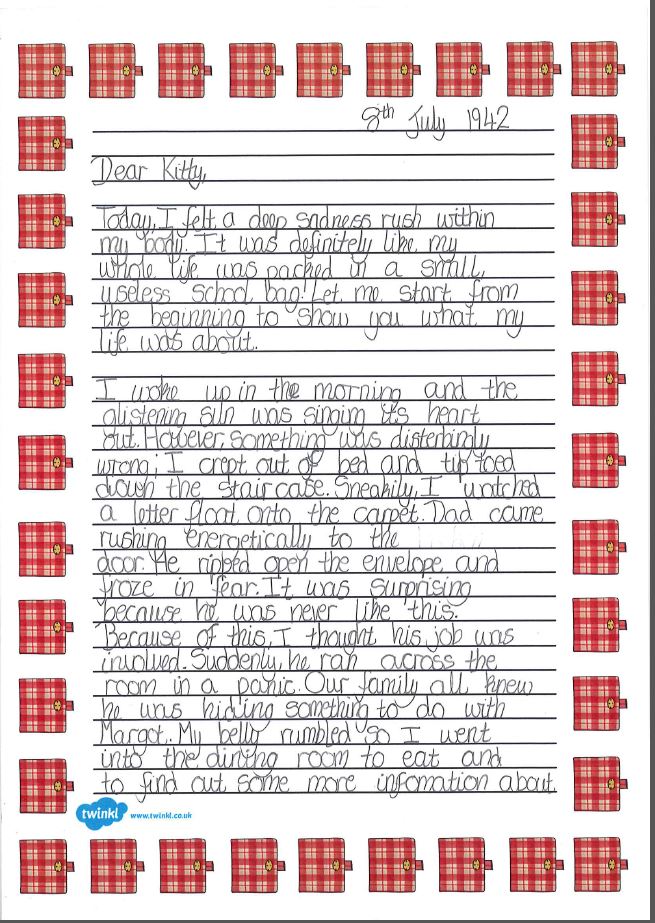 8th July 1942
Dear Kitty,
Today, I felt a deep sadness rush within
my body. It was definitely like my
whole life was packed in a small,
useless school bag! Let me start from
the beginning to show you what my
life was about.
I woke up in the morning and the
glistening sun was singing it's heart
out. However, something was disterbingly
wrong; I crept out of bed and tip toed
down the stair case. Sneakily, I watched
a letter float onto the carpet. Dad came
rushing energetically to the
door. He ripped open the envelope and
froze in fear. It was surprising
because he was never like this.
Because of this, I thought his job was
involved. Suddenly, he ran across the
room in a panic. Our family all knew
he was hiding something to do with
Margot. My belly rumbled so I went
into the dining room to eat and
to find out some more infomation about
twinkl www.twinkl.co.uk